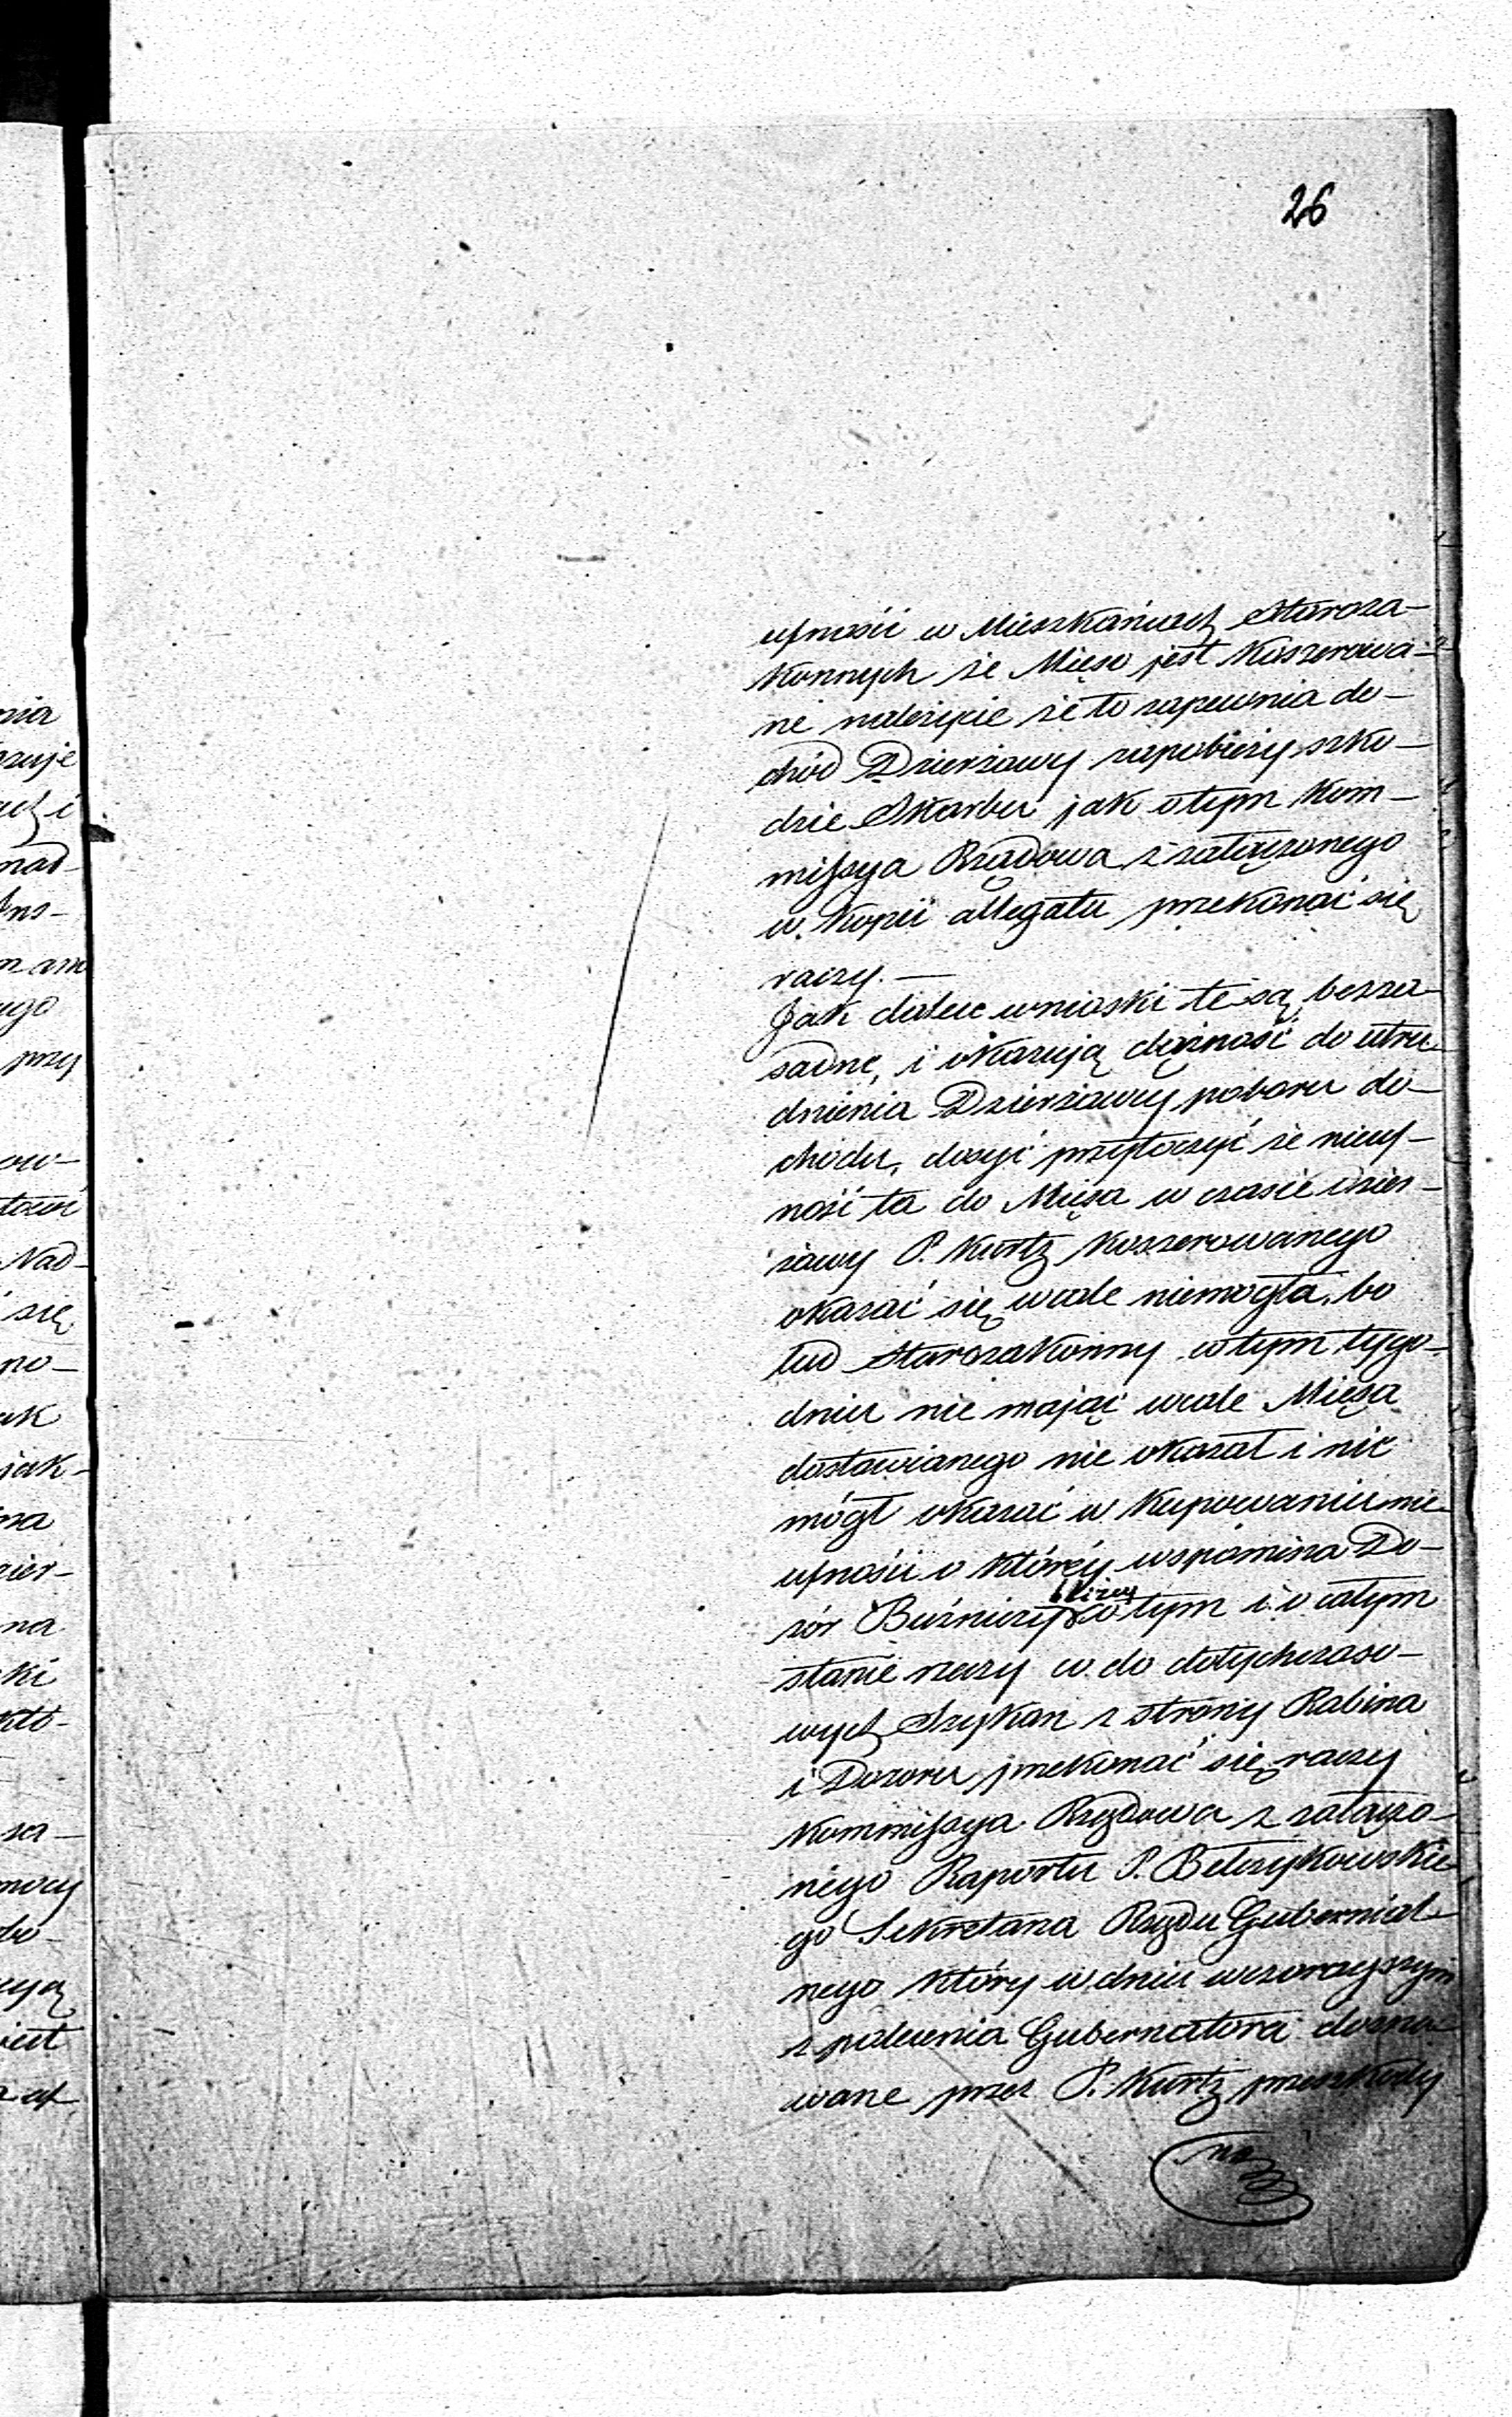 26
ufność w Mieszkańcach Staroza-
konnych że Mięso jest koszerowa-
ne należycie że to zapewnia do-
chód Dzierżawy zapobieży szko-
dzie Skarbu jak o tym Kom-
missya Rządowa z załączonego
w Kopii allegatu przekonać się
raczy. —
Jak dalece wnioski te są bezza-
sadne, i okazują dążność do utru-
dnienia Dzierżawy poboru do-
chodu, dosyć przytoczyć że nieuf-
ność ta do Mięsa w czasie dzier-
żawy P. Kurtz koszerowanego
okazać się wcale niemogła, bo
lud Starozakonny w tym tygo-
dniu nie mając wcale Mięsa
dostawianego nie okazał i nie
mógł okazać w kupowaniu nie-
ufności o któréy wspomina Do-
zór Bużniczy bliżey o tym i o całym
stanie rzeczy co do dotychczaso-
wych Szykan z strony Rabina
i Dozoru przekonać się raczy
Kommissya Rządowa z załączo-
nego Raportu P. Bełczykowskie-
go Sekretarza Rządu Gubernial-
nego który w dniu wczorayszym
z polecenia Gubernatora dozna-
wane przez P. Kurtz przeszkody
na
nia
nad-
ugo
przy
ow-
Nad-
się
no-
ak
jak-
na
zier-
na
ki
za-